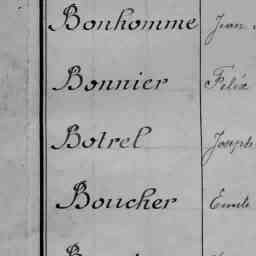 Bonhomme Jean
Bonnier Félix
Botrel Joseph
Boucher Emile